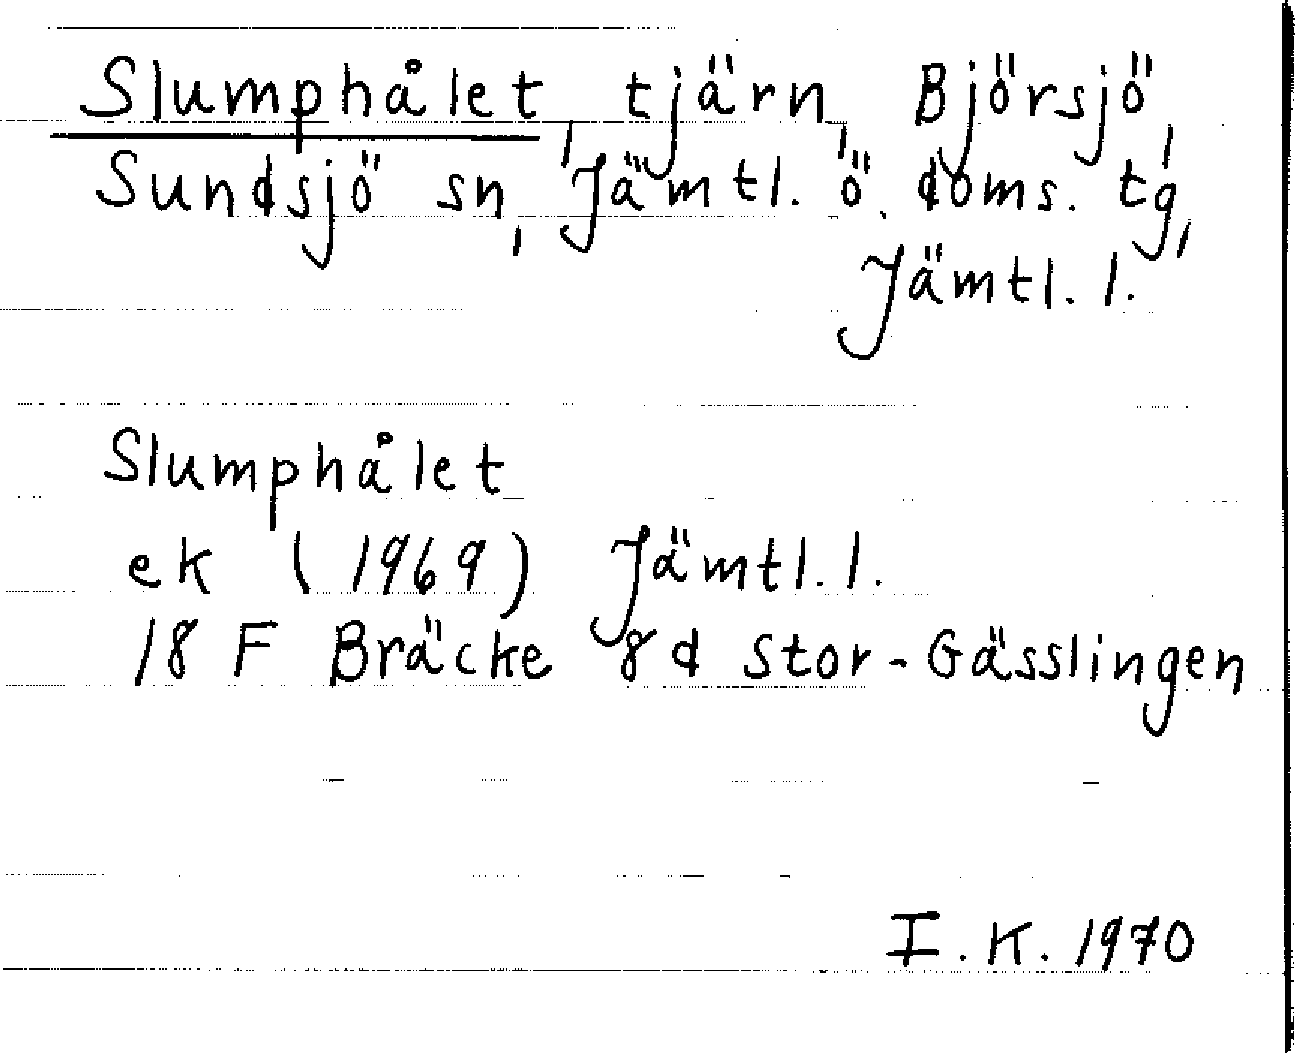 Slumphålet, tjärn, Björsjö,
Sundsjö sn, Jämtl. ö. doms. tg,
Jämtl. l.
Slumphålet
ek (1969) Jämtl. l.
18 F Bräcke 8d Stor-Gässlingen
I. K. 1970